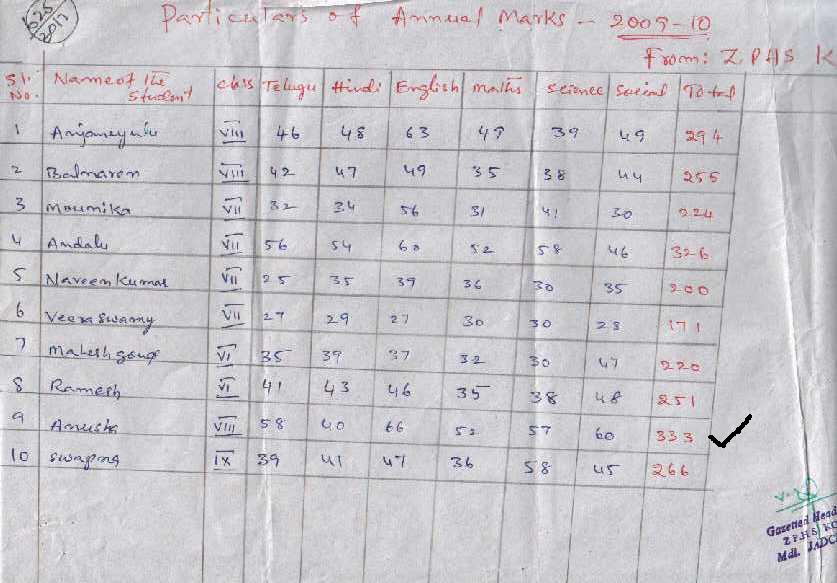 625
2017
Particulars of Annual Marks - 2009-10
From: ZPHS K
Sl. No. Name of the Student Class Telugu Hindi English maths Science Social Total
1 Anjaneyulu VIII 46 48 63 49 39 49 294
2 Balnaren VIII 42 47 49 35 38 44 255
3 Mounika VII 32 34 56 31 41 30 224
4 Andalu VII 56 54 60 52 58 46 326
5 Naveen Kumar VII 25 35 39 36 30 35 200
6 Veera Swamy VII 27 29 27 30 30 28 171
7 Mahesh goud VI 35 39 37 32 30 47 220
8 Ramesh VI 41 43 46 35 38 48 251
9 Anusha VIII 58 40 66 52 57 60 333
10 Swapna IX 39 41 47 36 58 45 266
Gazetted Head
Z.P.H.S. KO
Mdl. JADC